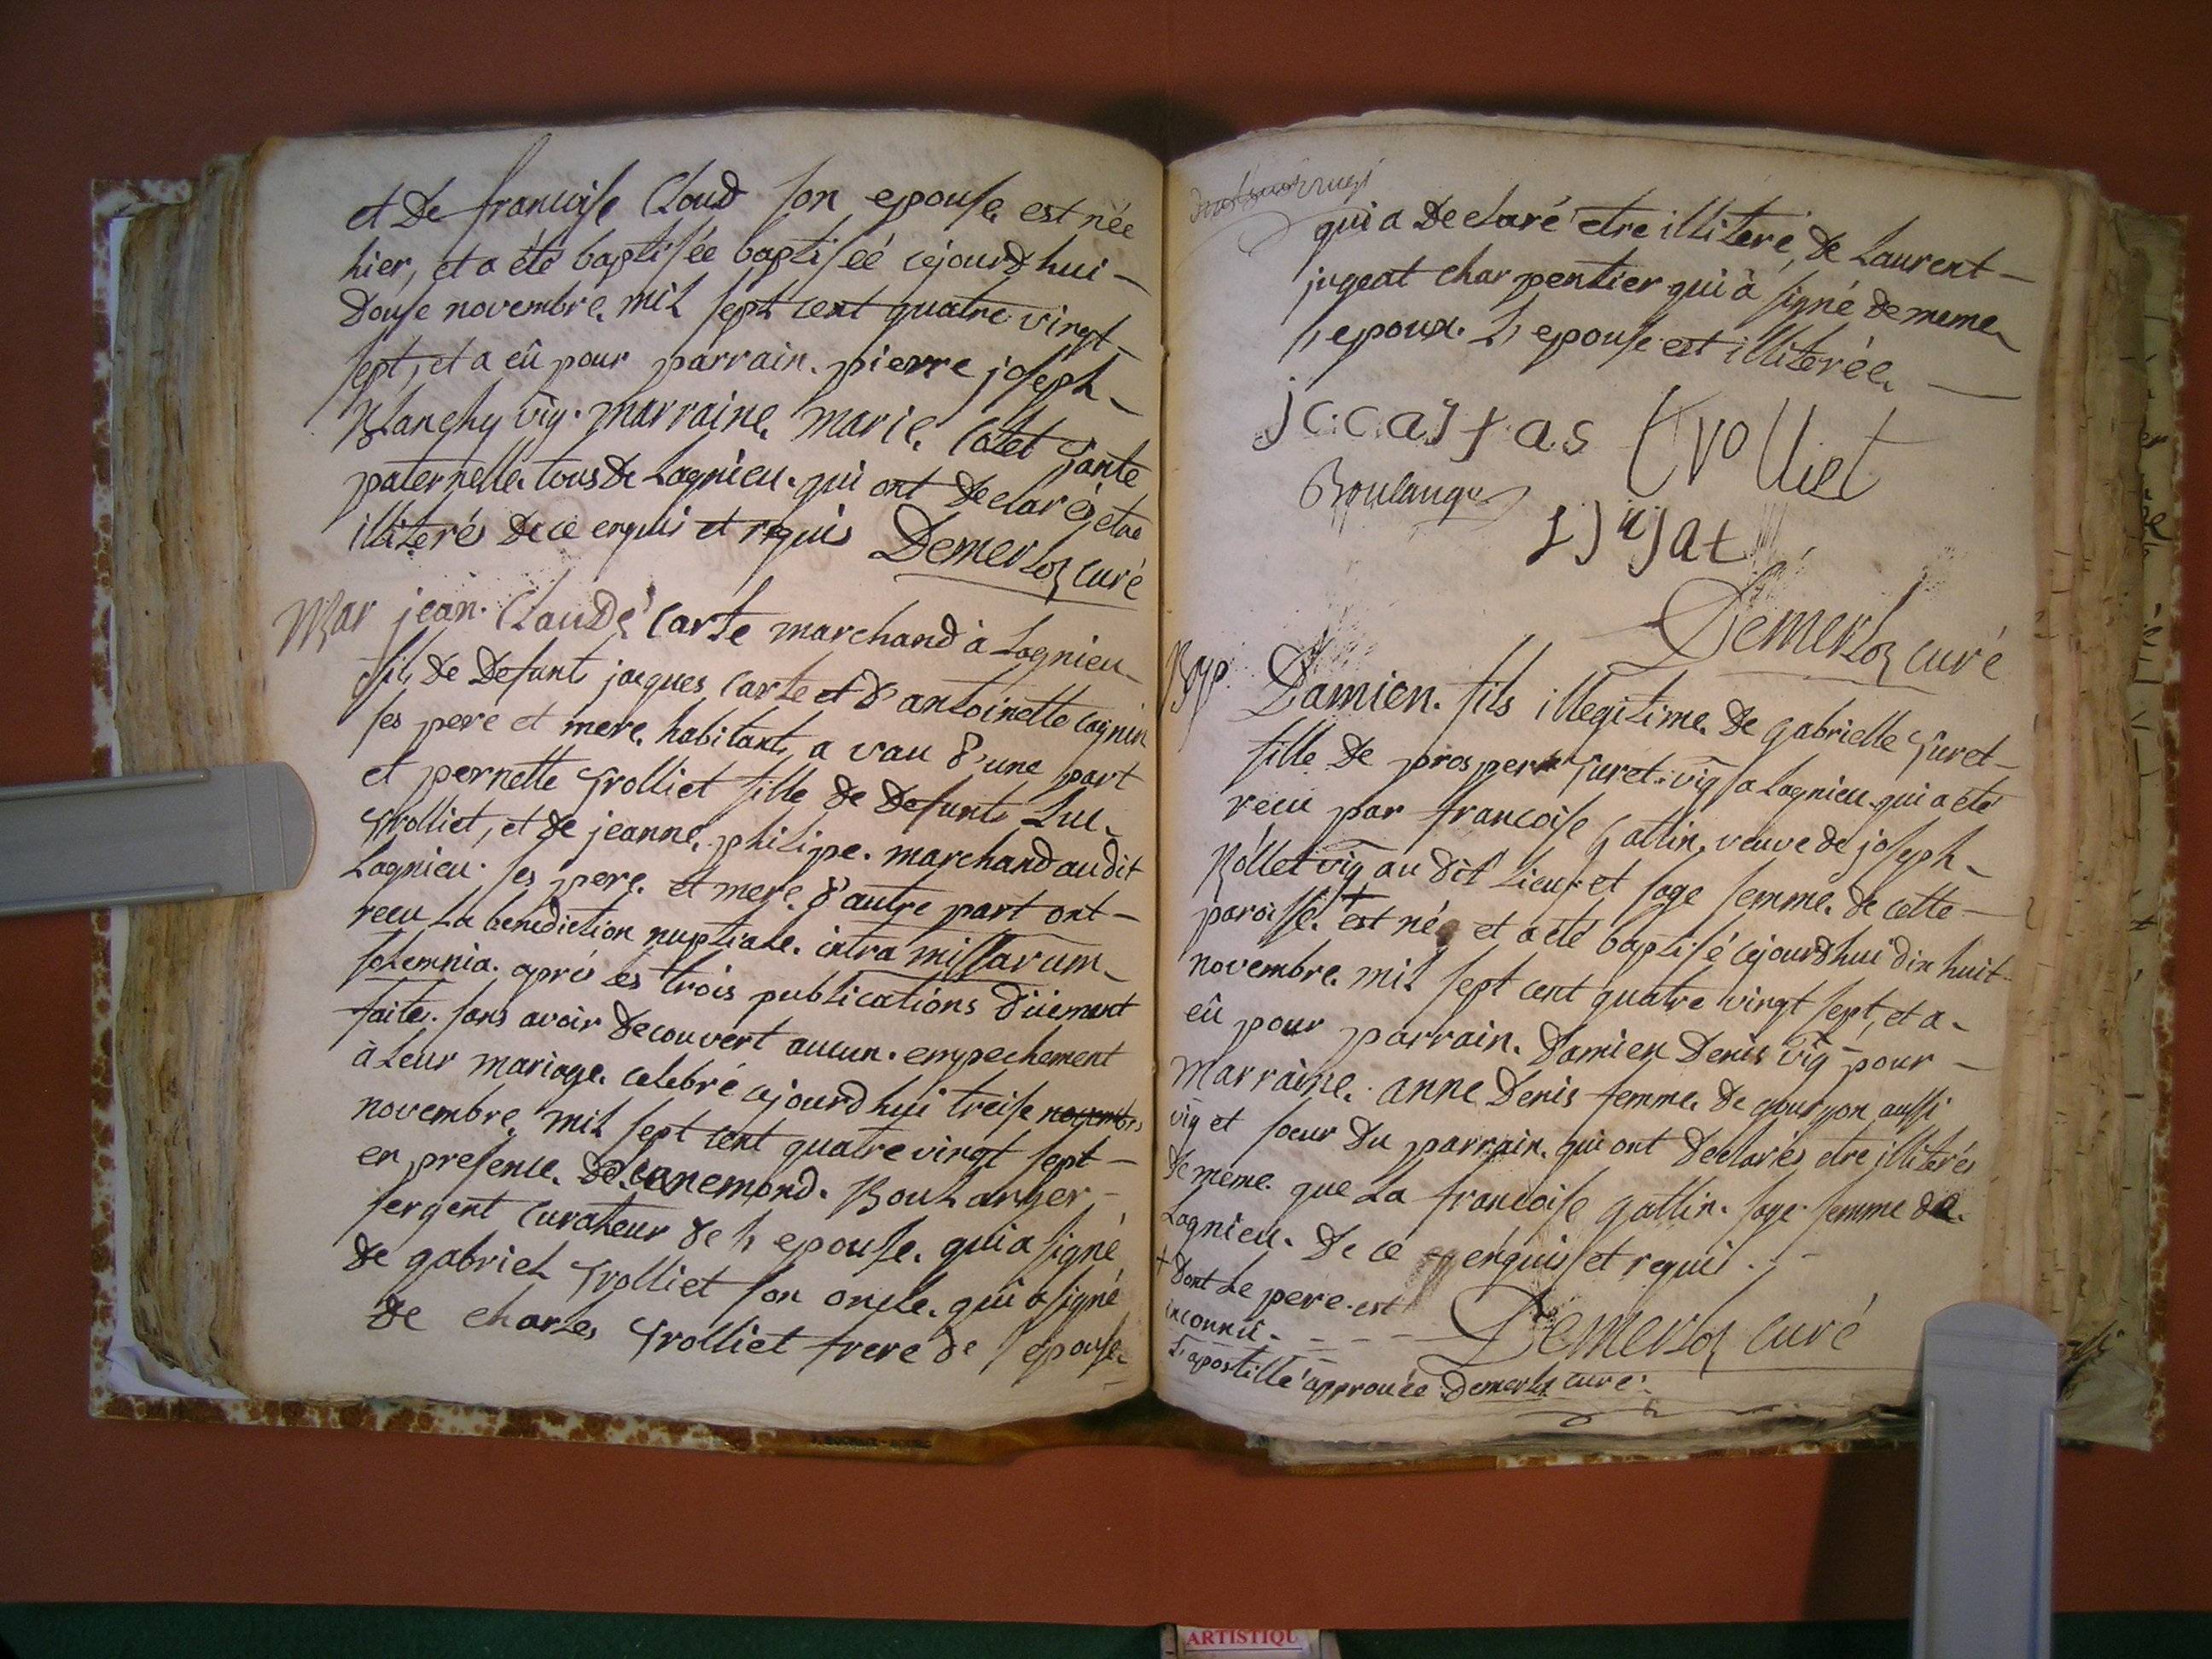 et De francoise Cloud son epouse est née
hier, et a été baptisée baptiseé cejourdhui -
Douse novembre mil sept cent quatre vingt
sept, et a eû pour parrain pierre joseph -
Blanchy vig. marraine Marie Cotet Tante
paternelle tous de Lagnieu. qui ont Declarés etre
illiterés De ce enquis et requis Demerloz curé
Mar jean Claude Carte marchand à Lagnieu
fils De Defunt jacques Carte et d'antoinette Cagnin
ses pere et mere habitants a vau d'une part
et pernette Trolliet fille de Defunt Luc
Trolliet, et de jeanne philipe marchand audit
Lagnieu ses pere et mere d'autre part ont -
recu La benediction nuptiale intra missarum
solemnia. aprés Les trois publications düement
faites sans avoir Decouvert aucun empechement
à Leur mariage celebré cejourdhui treise novembre
novembre mil sept cent quatre vingt sept -
en presence De anemond Boulanger
sergent curateur de L'epouse qui a signé
de gabriel Trolliet son oncle qui a signé
De charles Trolliet frere de l'epouse
qui a Declaré etre illiteré, de Laurent -
jugeat charpentier qui à signé de meme
L'epoux. L'epouse est illiterée
Trolliet
Boulanger
L Jujat
Demerloz curé
Bap. Damien fils illegitime De gabrielle Turet
fille De prosper Turet vig a Lagnieu qui a été
recu par francoise Gallin veuve de joseph
Rollet vig au dit Lieu et sage femme de cette
paroisse + est né et a été baptisé cejourdhui dix huit
novembre mil sept cent quatre vingt sept, et a
eû pour parrain Damien Denis vig pour -
Marraine anne Denis femme De gourjon aussi
vig et soeur Du parrain qui ont Declarés etre illiterés
De meme que La francoise gallin sage femme de
Lagnieu. De ce enquis et requis.
+ Dont Le pere est
inconnû - - - - Demerloz curé
L'apostille approuvée Demerloz curé
ARTISTIQU